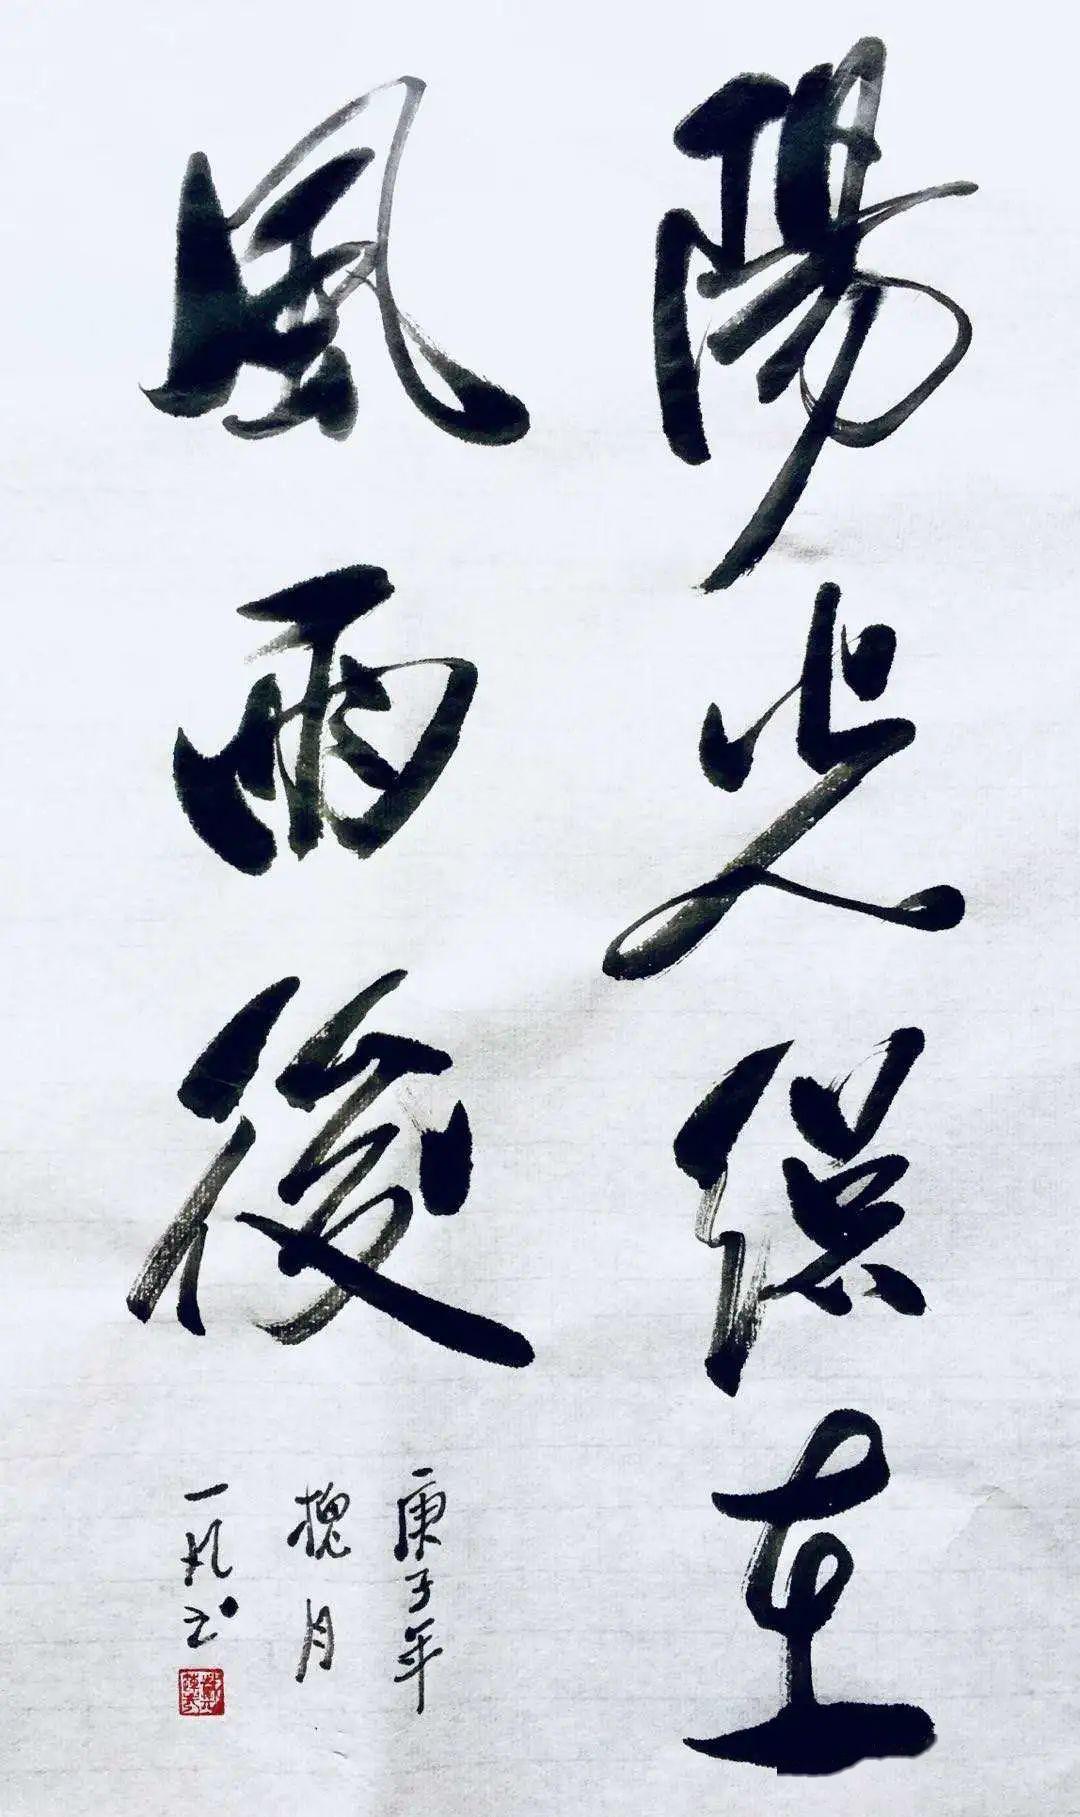 陽光總在
風雨後
庚子年
槐月
一凡书